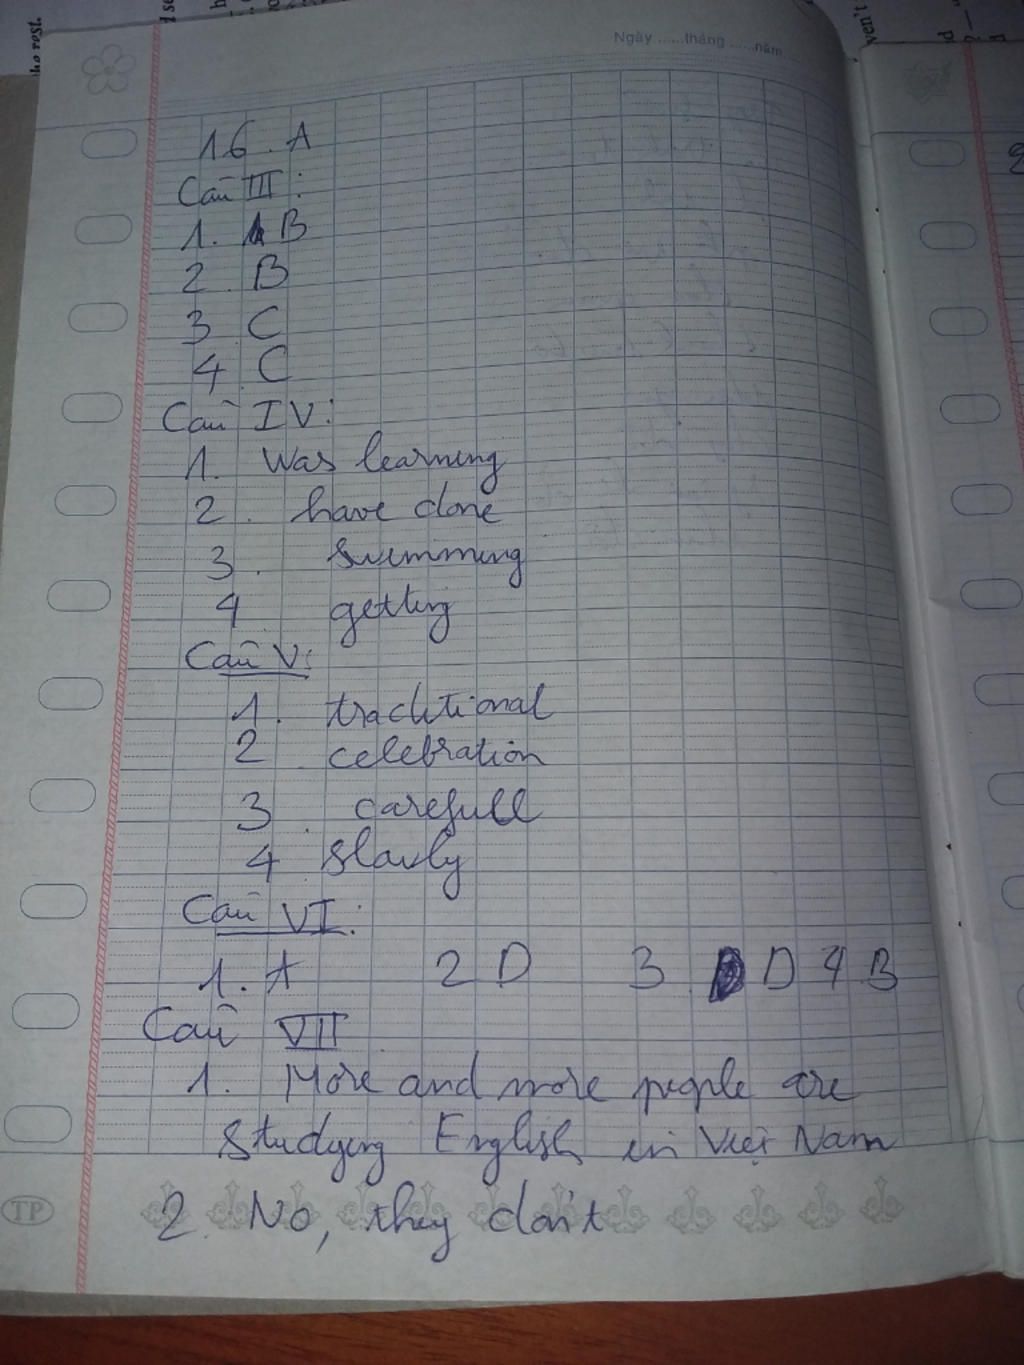 Ngày ......tháng ......năm
16. A
Câu III:
1. B
2. B
3 C
4 C
Câu IV:
1. Was learning
2. have done
3. swimming
4 getting
Câu V:
1. traditional
2 celebration
3. carefull
4 slowly
Câu VI:
1. A 2 D 3 D 4 B
Câu VII
1. More and more people are
studying English in Việt Nam
2. No, they don't
TP
ho rest.